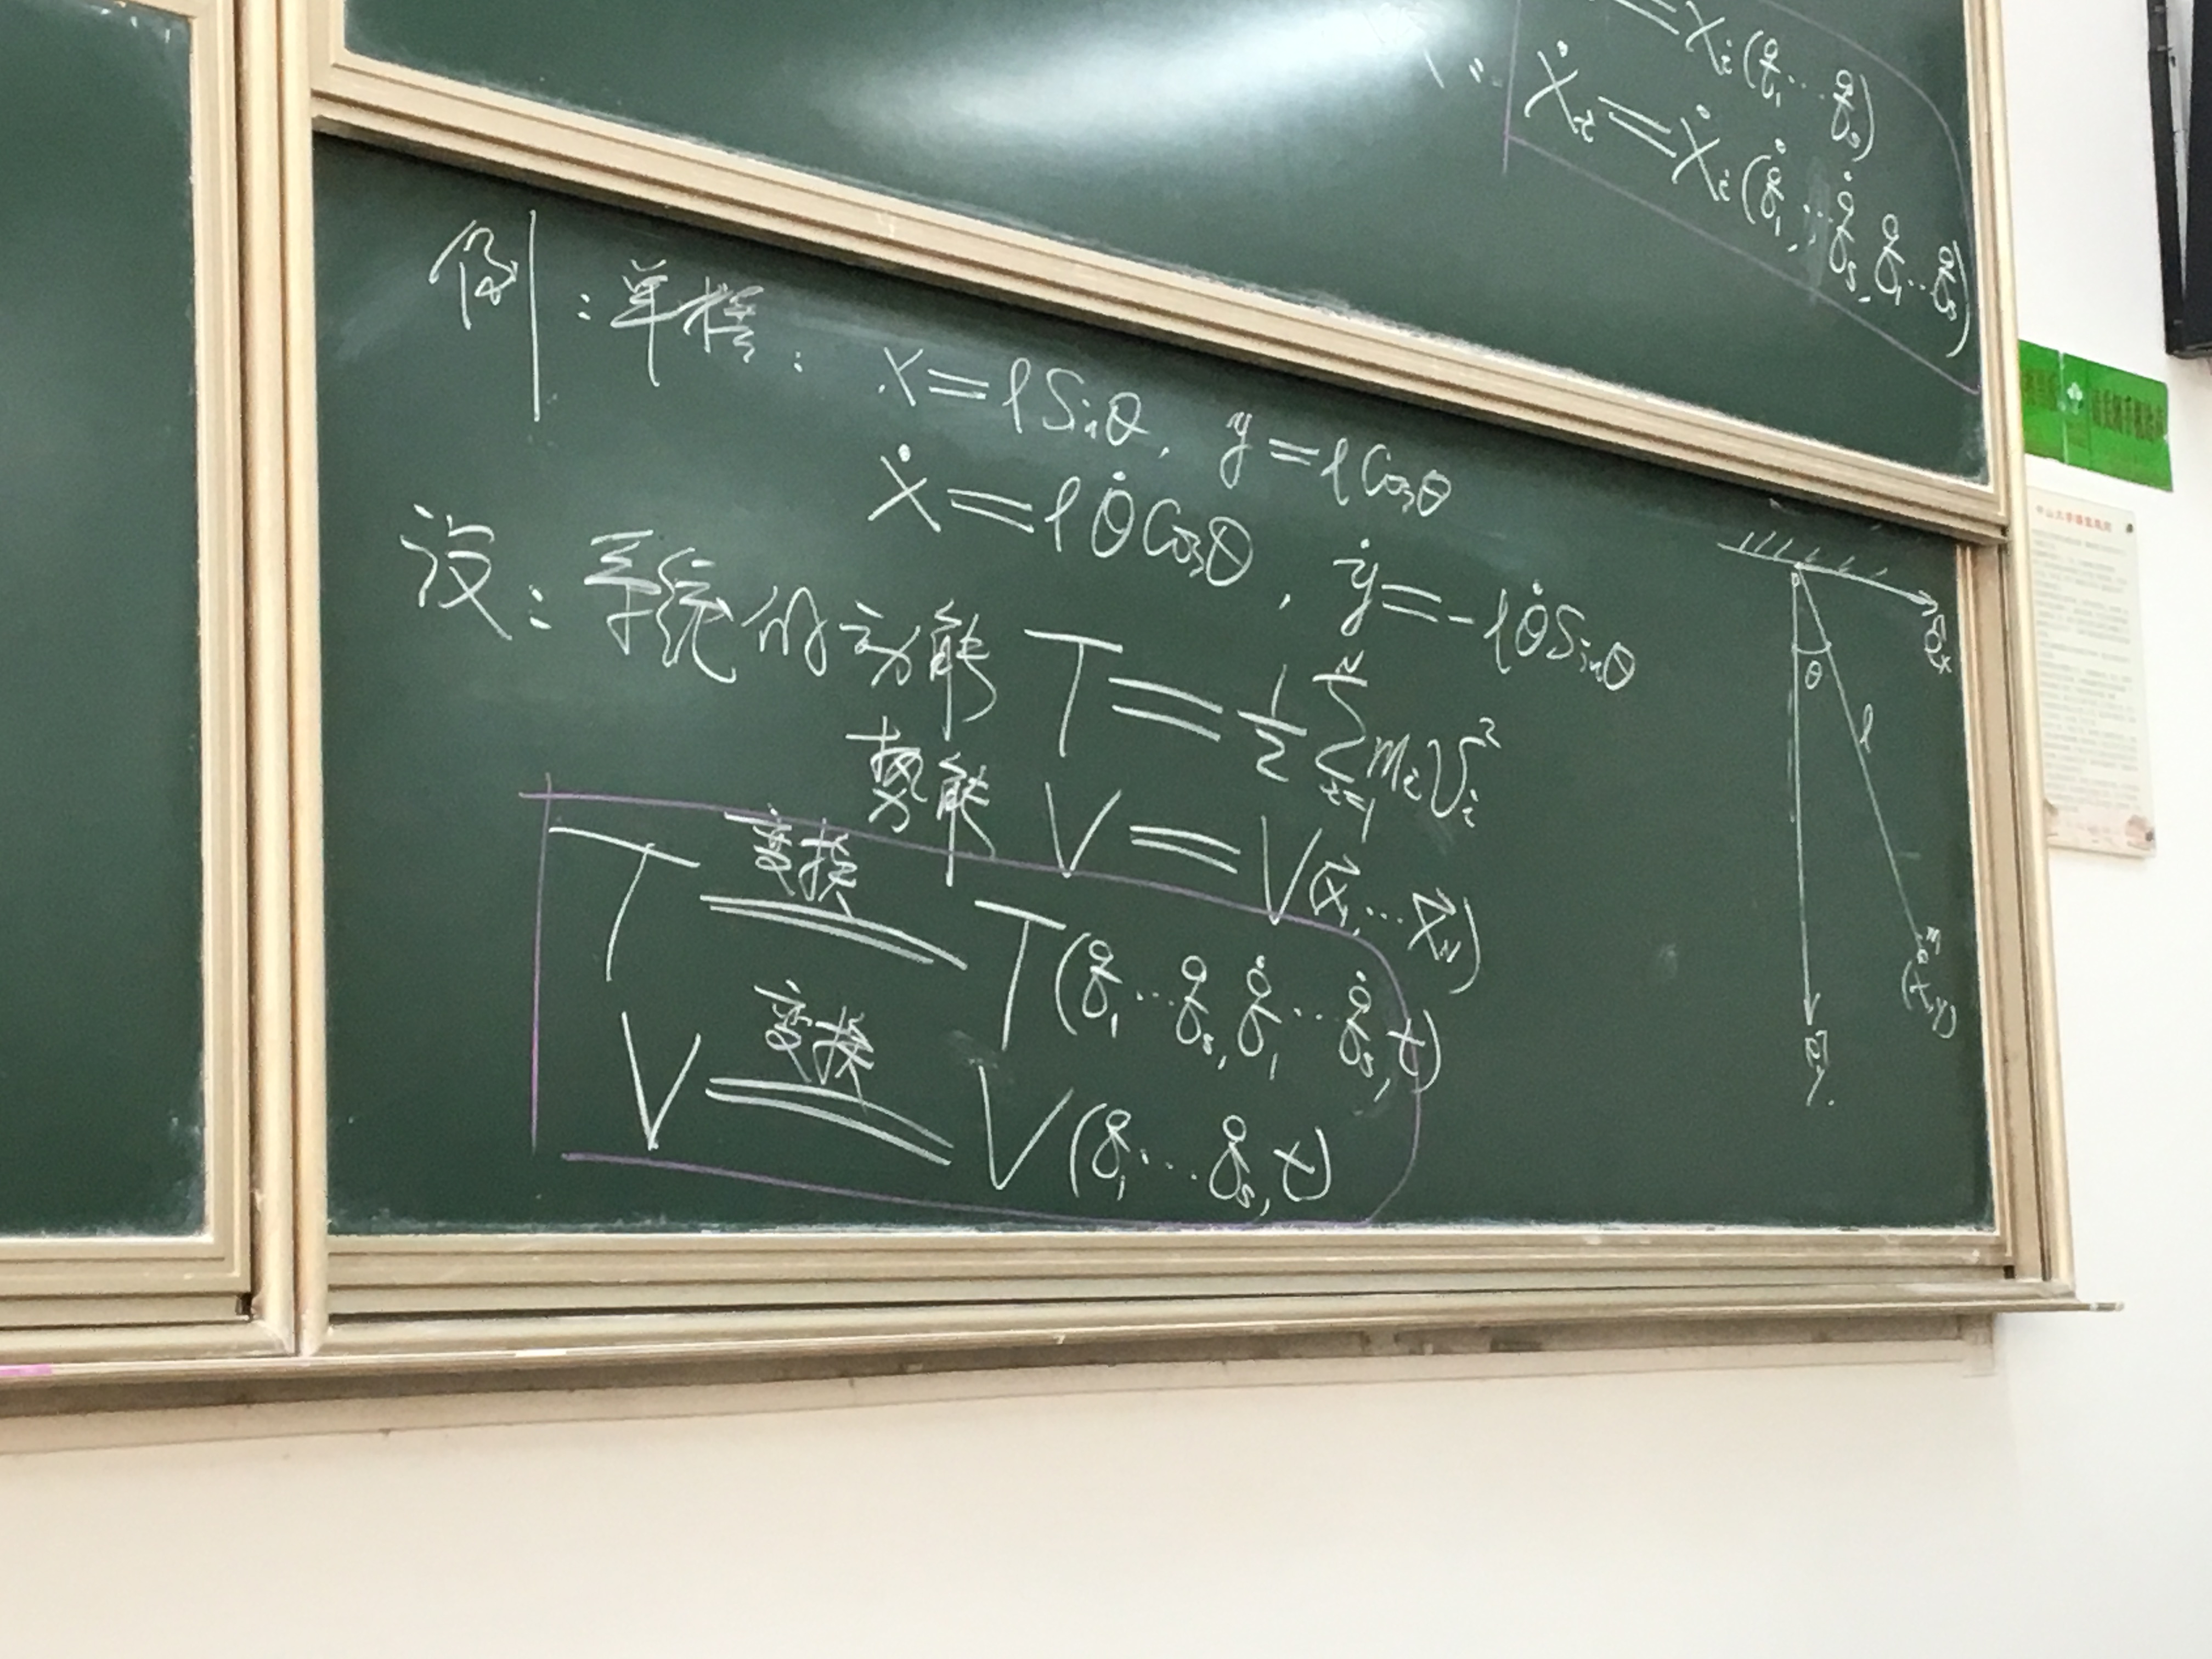 = xᵢ(q₁...qₛ)
ẋᵢ = ẋᵢ(q̇₁,...q̇ₛ,q₁...qₛ)
例:单摆: x = l Sinθ, y = l Cosθ
ẋ = l θ̇ Cosθ, ẏ = -l θ̇ Sinθ
设:系统的动能 T = 1/2 Σᵢ₌₁ᴺ mᵢ vᵢ²
势能 V = V(x⃗₁...x⃗_N)
T 变换 = T(q₁...qₛ,q̇₁...q̇ₛ,t)
V 变换 = V(q₁...qₛ,t)
e⃗ₓ
θ
l
m
(x,y)
e⃗_y